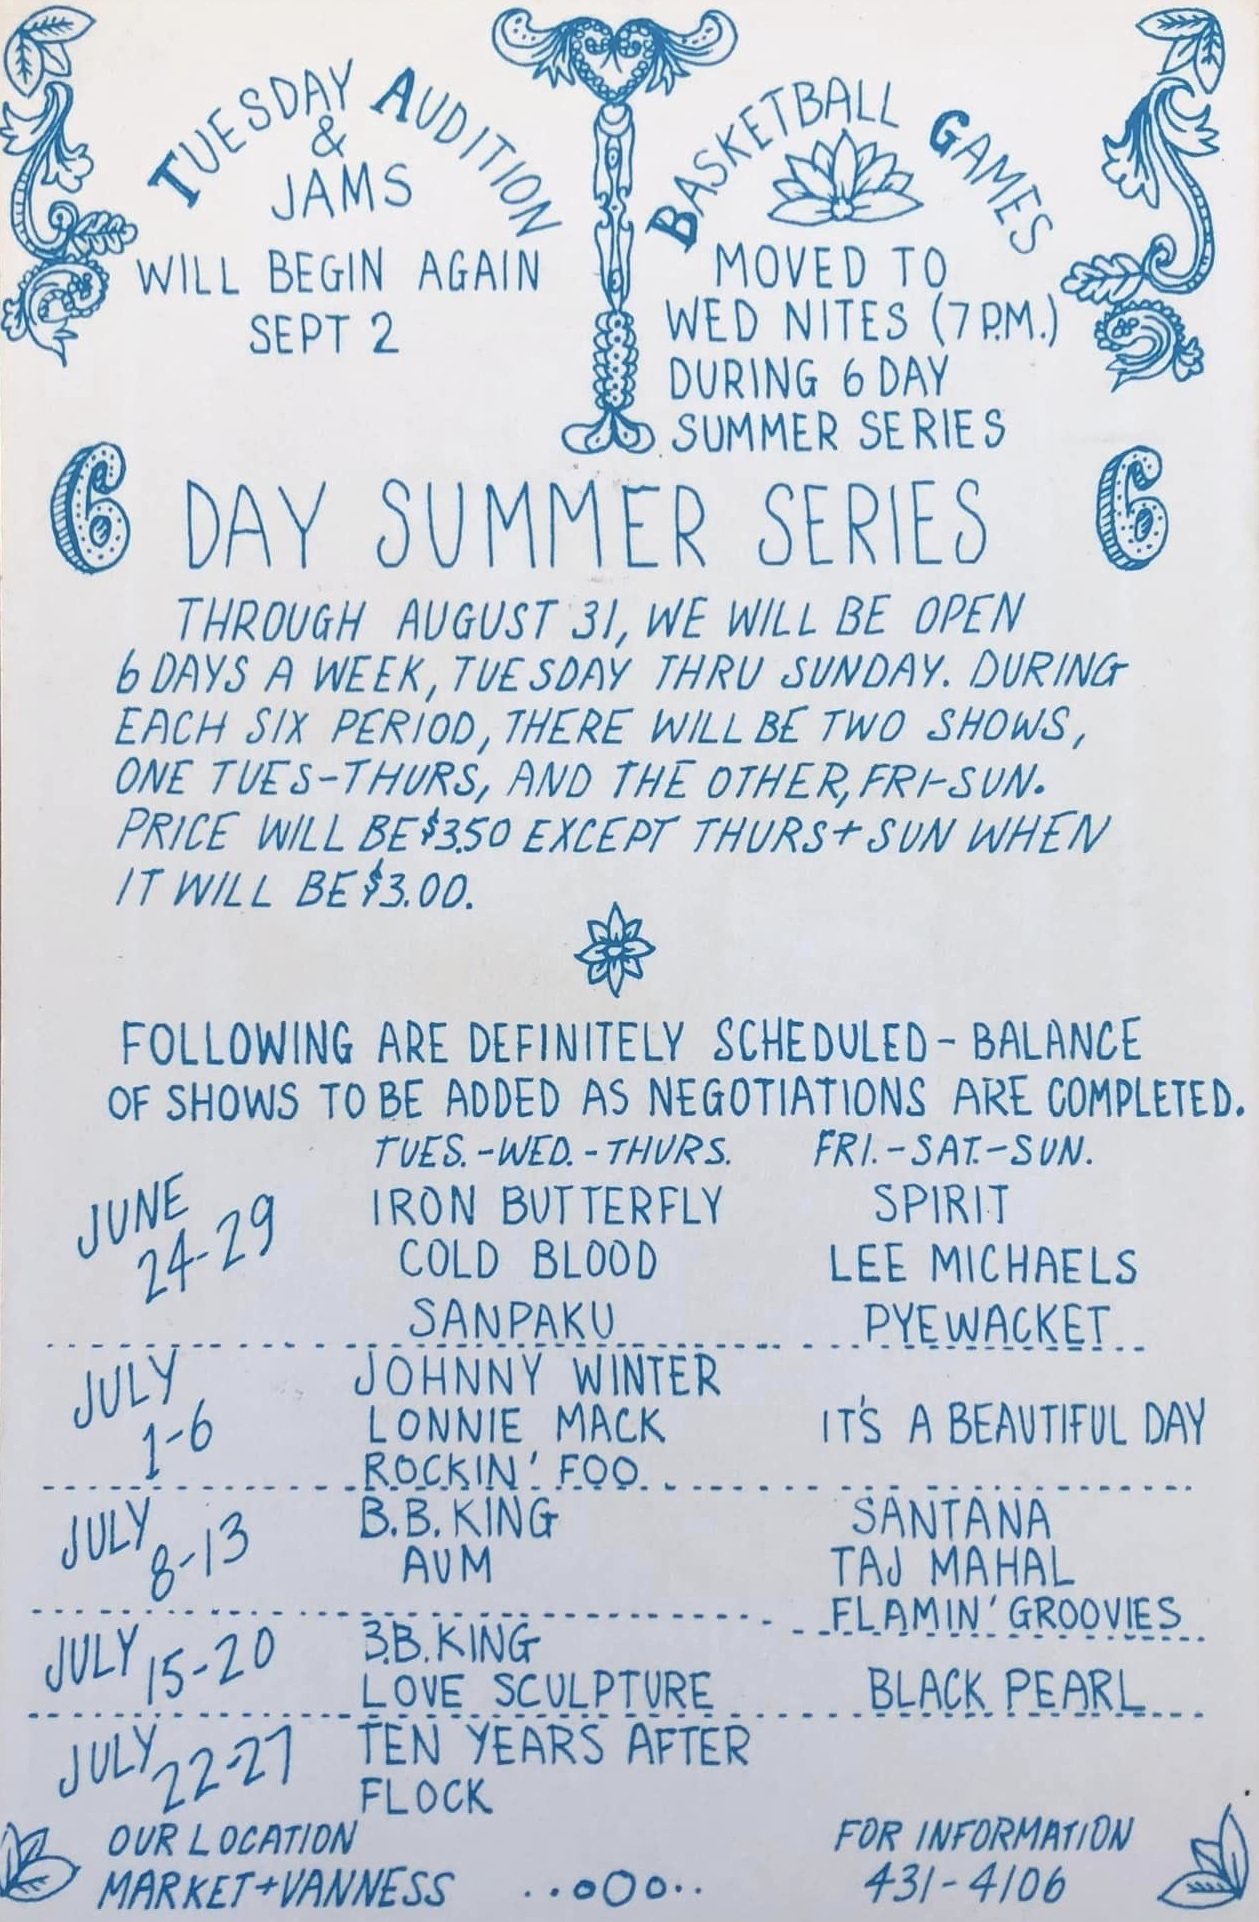 TUESDAY AUDITION
&
JAMS
WILL BEGIN AGAIN
SEPT 2
BASKETBALL GAMES
MOVED TO
WED NITES (7 P.M.)
DURING 6 DAY
SUMMER SERIES
6 DAY SUMMER SERIES 6
THROUGH AUGUST 31, WE WILL BE OPEN
6 DAYS A WEEK, TUESDAY THRU SUNDAY. DURING
EACH SIX PERIOD, THERE WILL BE TWO SHOWS,
ONE TUES-THURS, AND THE OTHER, FRI-SUN.
PRICE WILL BE $3.50 EXCEPT THURS + SUN WHEN
IT WILL BE $3.00.
FOLLOWING ARE DEFINITELY SCHEDULED - BALANCE
OF SHOWS TO BE ADDED AS NEGOTIATIONS ARE COMPLETED.
TUES.-WED.-THURS. FRI.-SAT.-SUN.
JUNE
24-29
IRON BUTTERFLY
COLD BLOOD
SANPAKU
SPIRIT
LEE MICHAELS
PYEWACKET
JULY
1-6
JOHNNY WINTER
LONNIE MACK
ROCKIN' FOO
IT'S A BEAUTIFUL DAY
JULY
8-13
B.B. KING
AUM
SANTANA
TAJ MAHAL
FLAMIN' GROOVIES
JULY 15-20
B.B. KING
LOVE SCULPTURE
BLACK PEARL
JULY 22-27
TEN YEARS AFTER
FLOCK
OUR LOCATION
MARKET + VANNESS
FOR INFORMATION
431-4106